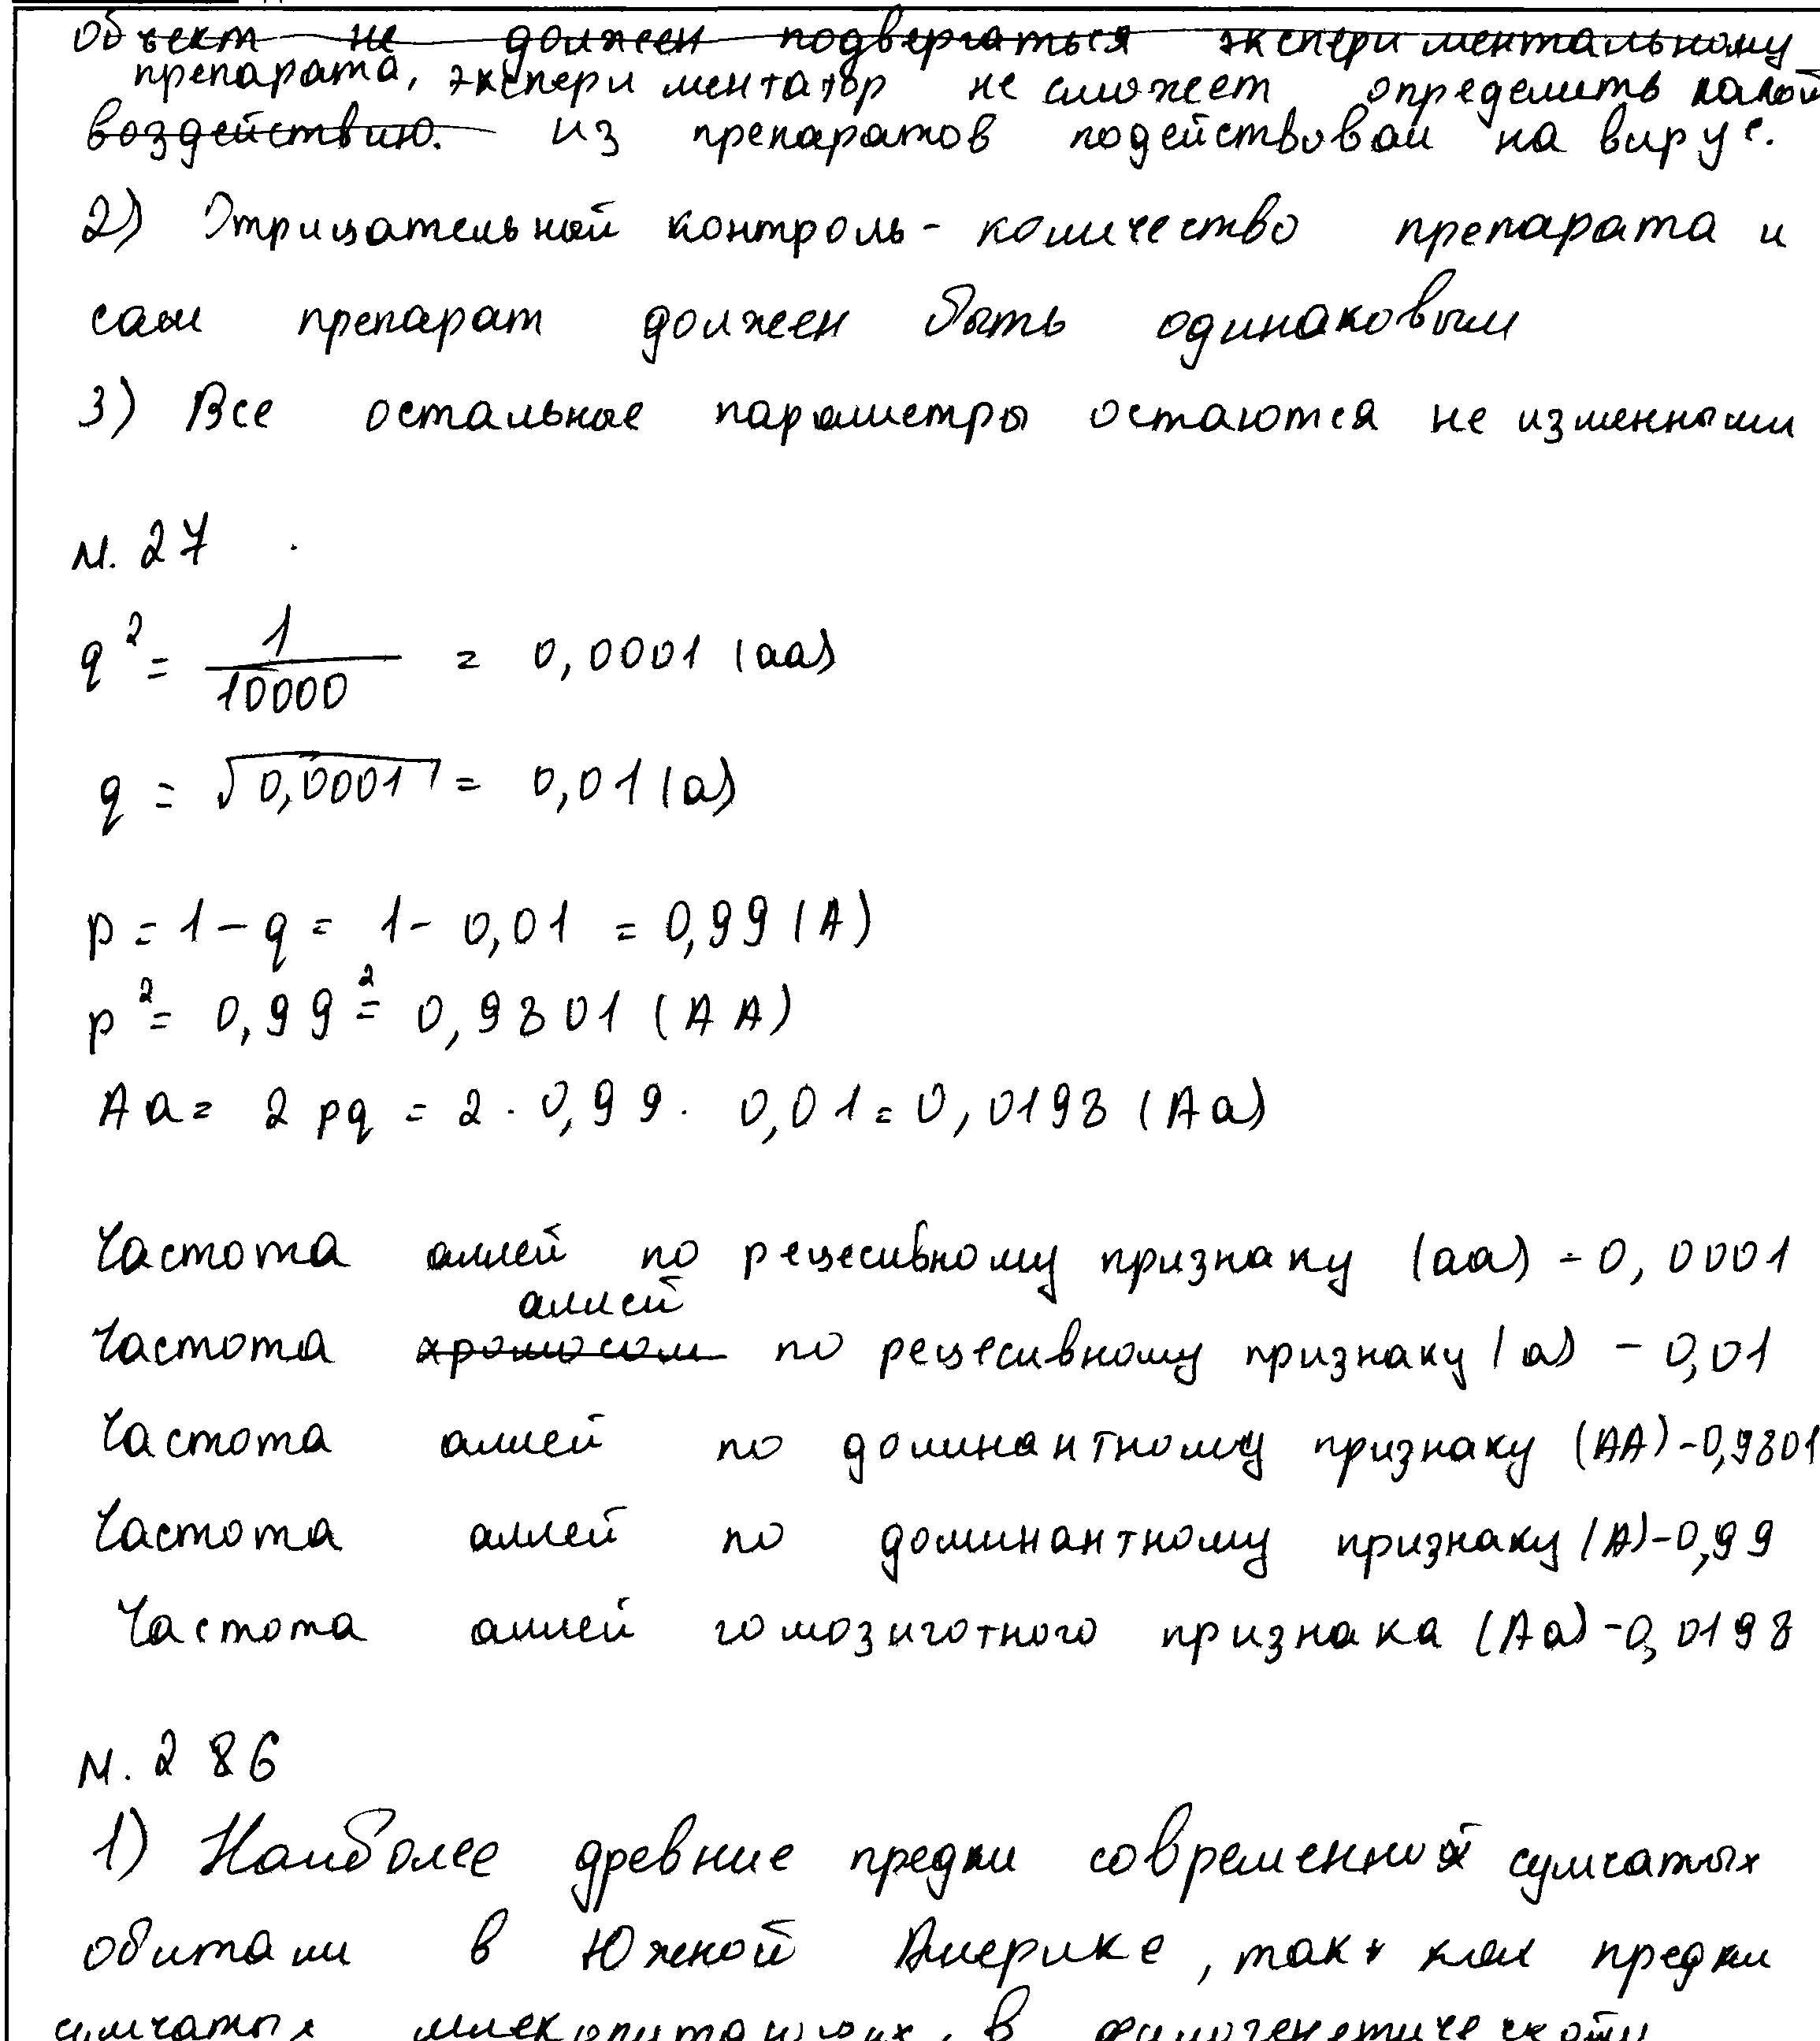 объект не должен подвергаться экспериментальному
препарата, экспериментатор не сможет определить какой
воздействию. из препаратов подействовал на вирус.
2) Отрицательной контроль - количество препарата и
сам препарат должен быть одинаковым
3) Все остальные параметры остаются не изменными
N. 27
q² = 1/10000 = 0,0001 (aa)
q = √0,0001 = 0,01 (a)
p = 1 - q = 1 - 0,01 = 0,99 (A)
p² = 0,99² = 0,9801 (AA)
Aa = 2pq = 2 · 0,99 · 0,01 = 0,0198 (Aa)
Частота аллей по рецесивному признаку (aa) - 0,0001
аллей
Частота хромосом по рецесивному признаку (a) - 0,01
Частота аллей по доминантному признаку (AA) - 0,9801
Частота аллей по доминантному признаку (A) - 0,99
Частота аллей гомозиготного признака (Aa) - 0,0198
N. 286
1) Наиболее древние предки современных сумчатых
обитали в Южной Америке, так как предки
сумчатых млекопитающих, в